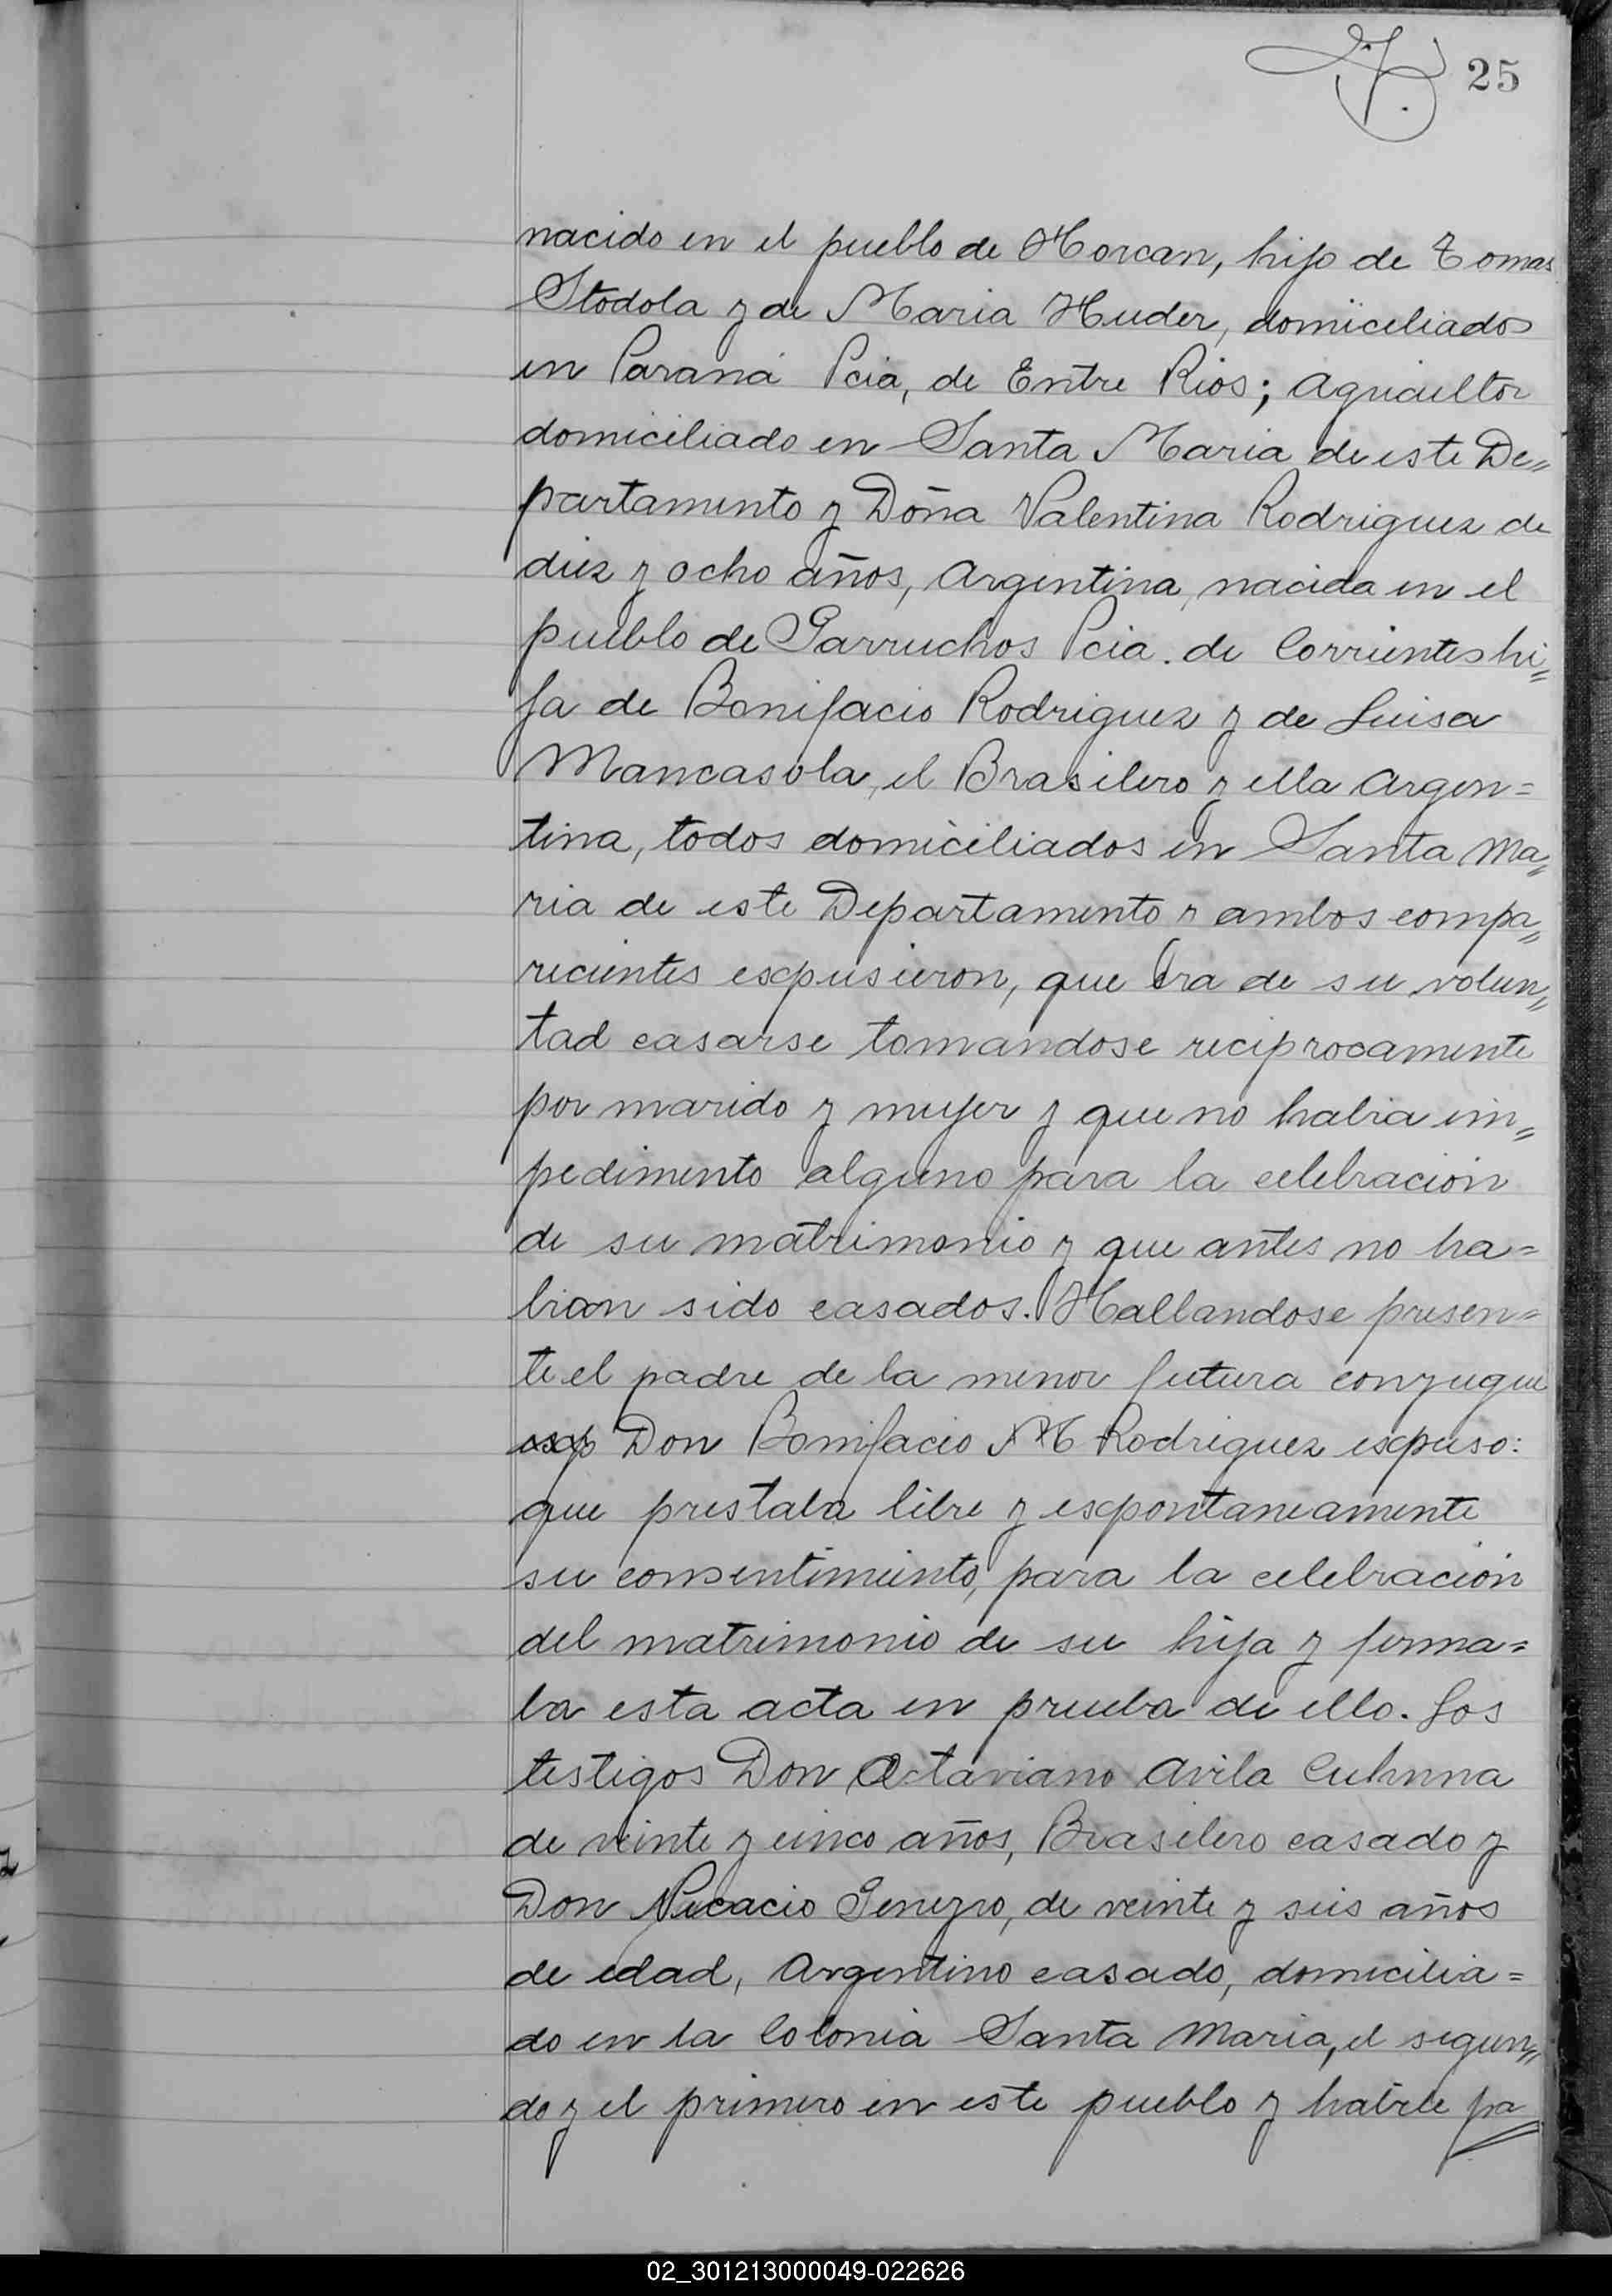 25
nacido en el pueblo de Horcan, hijo de Tomas
Stodola y de Maria Huder, domiciliados
en Paraná Pcia, de Entre Rios; agricultor
domiciliado en Santa Maria de este De=
partamento y Doña Valentina Rodriguez de
diez y ocho años, Argentina, nacida en el
pueblo de Garruchos Pcia. de Corrientes hi=
ja de Bonifacio Rodriguez y de Luisa
Mancasola, el Brasilero y ella Argen=
tina, todos domiciliados en Santa Ma=
ria de este Departamento y ambos compa=
recientes espusieron, que era de su volun=
tad casarse tomandose reciprocamente
por marido y mujer y que no habia im=
pedimento alguno para la celebracion
de su matrimonio y que antes no ha=
bian sido casados. Hallandose presen=
te el padre de la menor futura conyugue
Don Bonifacio M Rodriguez espuso:
que prestaba libre y espontaneamente
su consentimiento, para la celebracion
del matrimonio de su hija y firma=
ba esta acta en prueba de ello. Los
testigos Don Octaviano Avila Cuhnna
de veinte y cinco años, Brasilero casado y
Don Nicacio Geneyro, de veinte y seis años
de edad, Argentino casado, domicilia=
do en la Colonia Santa Maria, el segun=
do y el primero en este pueblo y haberle pa
02_301213000049-022626